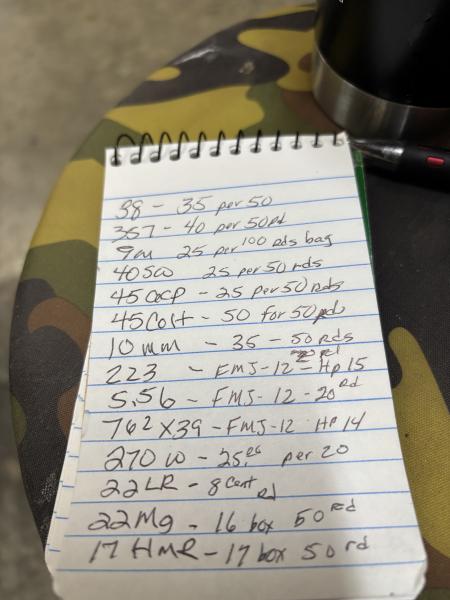 38 - 35 per 50
357 - 40 per 50 rd
9m 25 per 100 rds bag
40 SW 25 per 50 rds
45 acp - 25 per 50 rds
45 Colt - 50 for 50 rds
10 mm - 35 - 50 rds
223 - FMJ - 12 - 20 rd Hp 15
5.56 - FMJ - 12 - 20 rd
762 X 39 - FMJ - 12 HP 14
270 W - 25.00 per 20
22 LR - 8 cent rd
22 Mg - 16 box 50 rd
17 HMR - 17 box 50 rd